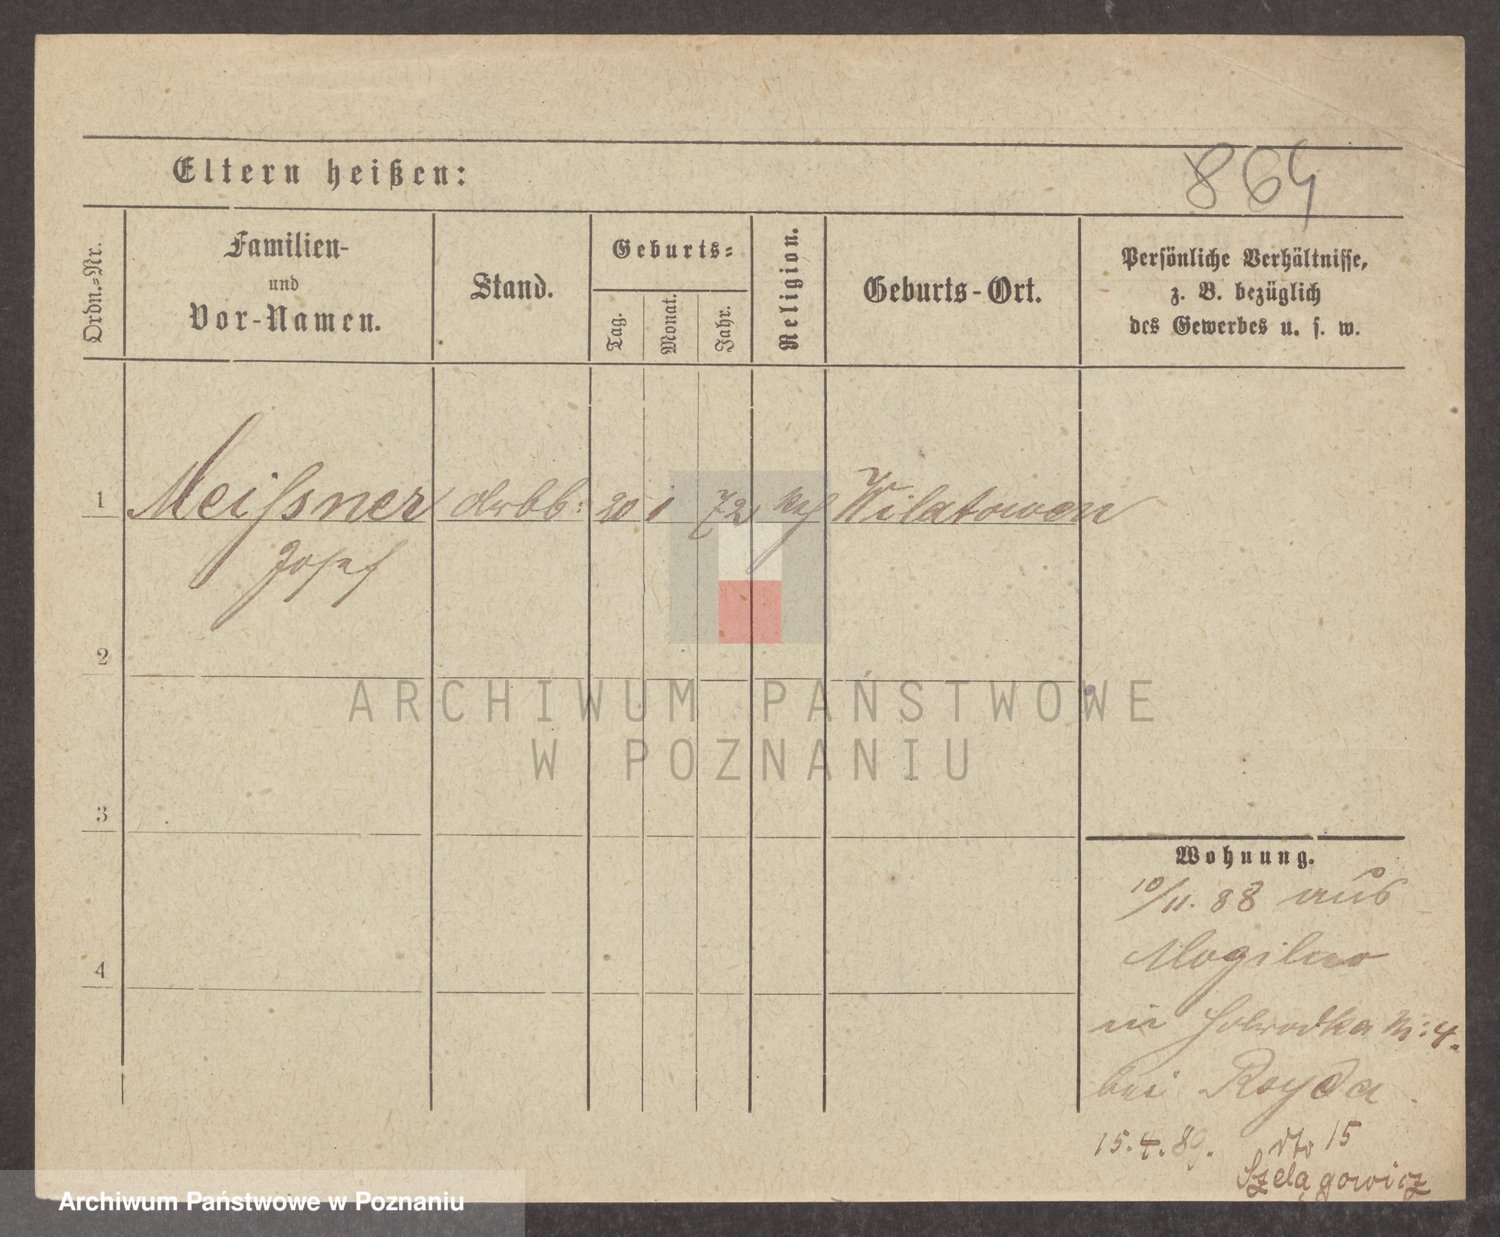 Eltern heißen:
864
Ordn.-Nr.
Familien-
und
Vor-Namen.
Stand.
Geburts-
Tag.
Monat.
Jahr.
Religion.
Geburts-Ort.
Persönliche Verhältnisse,
z. B. bezüglich
des Gewerbes u. s. w.
1 Meißner 20 1 72 Wilatowen
Josef
2
ARCHIWUM PAŃSTWOWE
W POZNANIU
3
Wohnung.
10/11. 88 aus
Mogilno
4
in N: 4.
bei Royda
15.4.89. dto 15
Szelągowicz
Archiwum Państwowe w Poznaniu